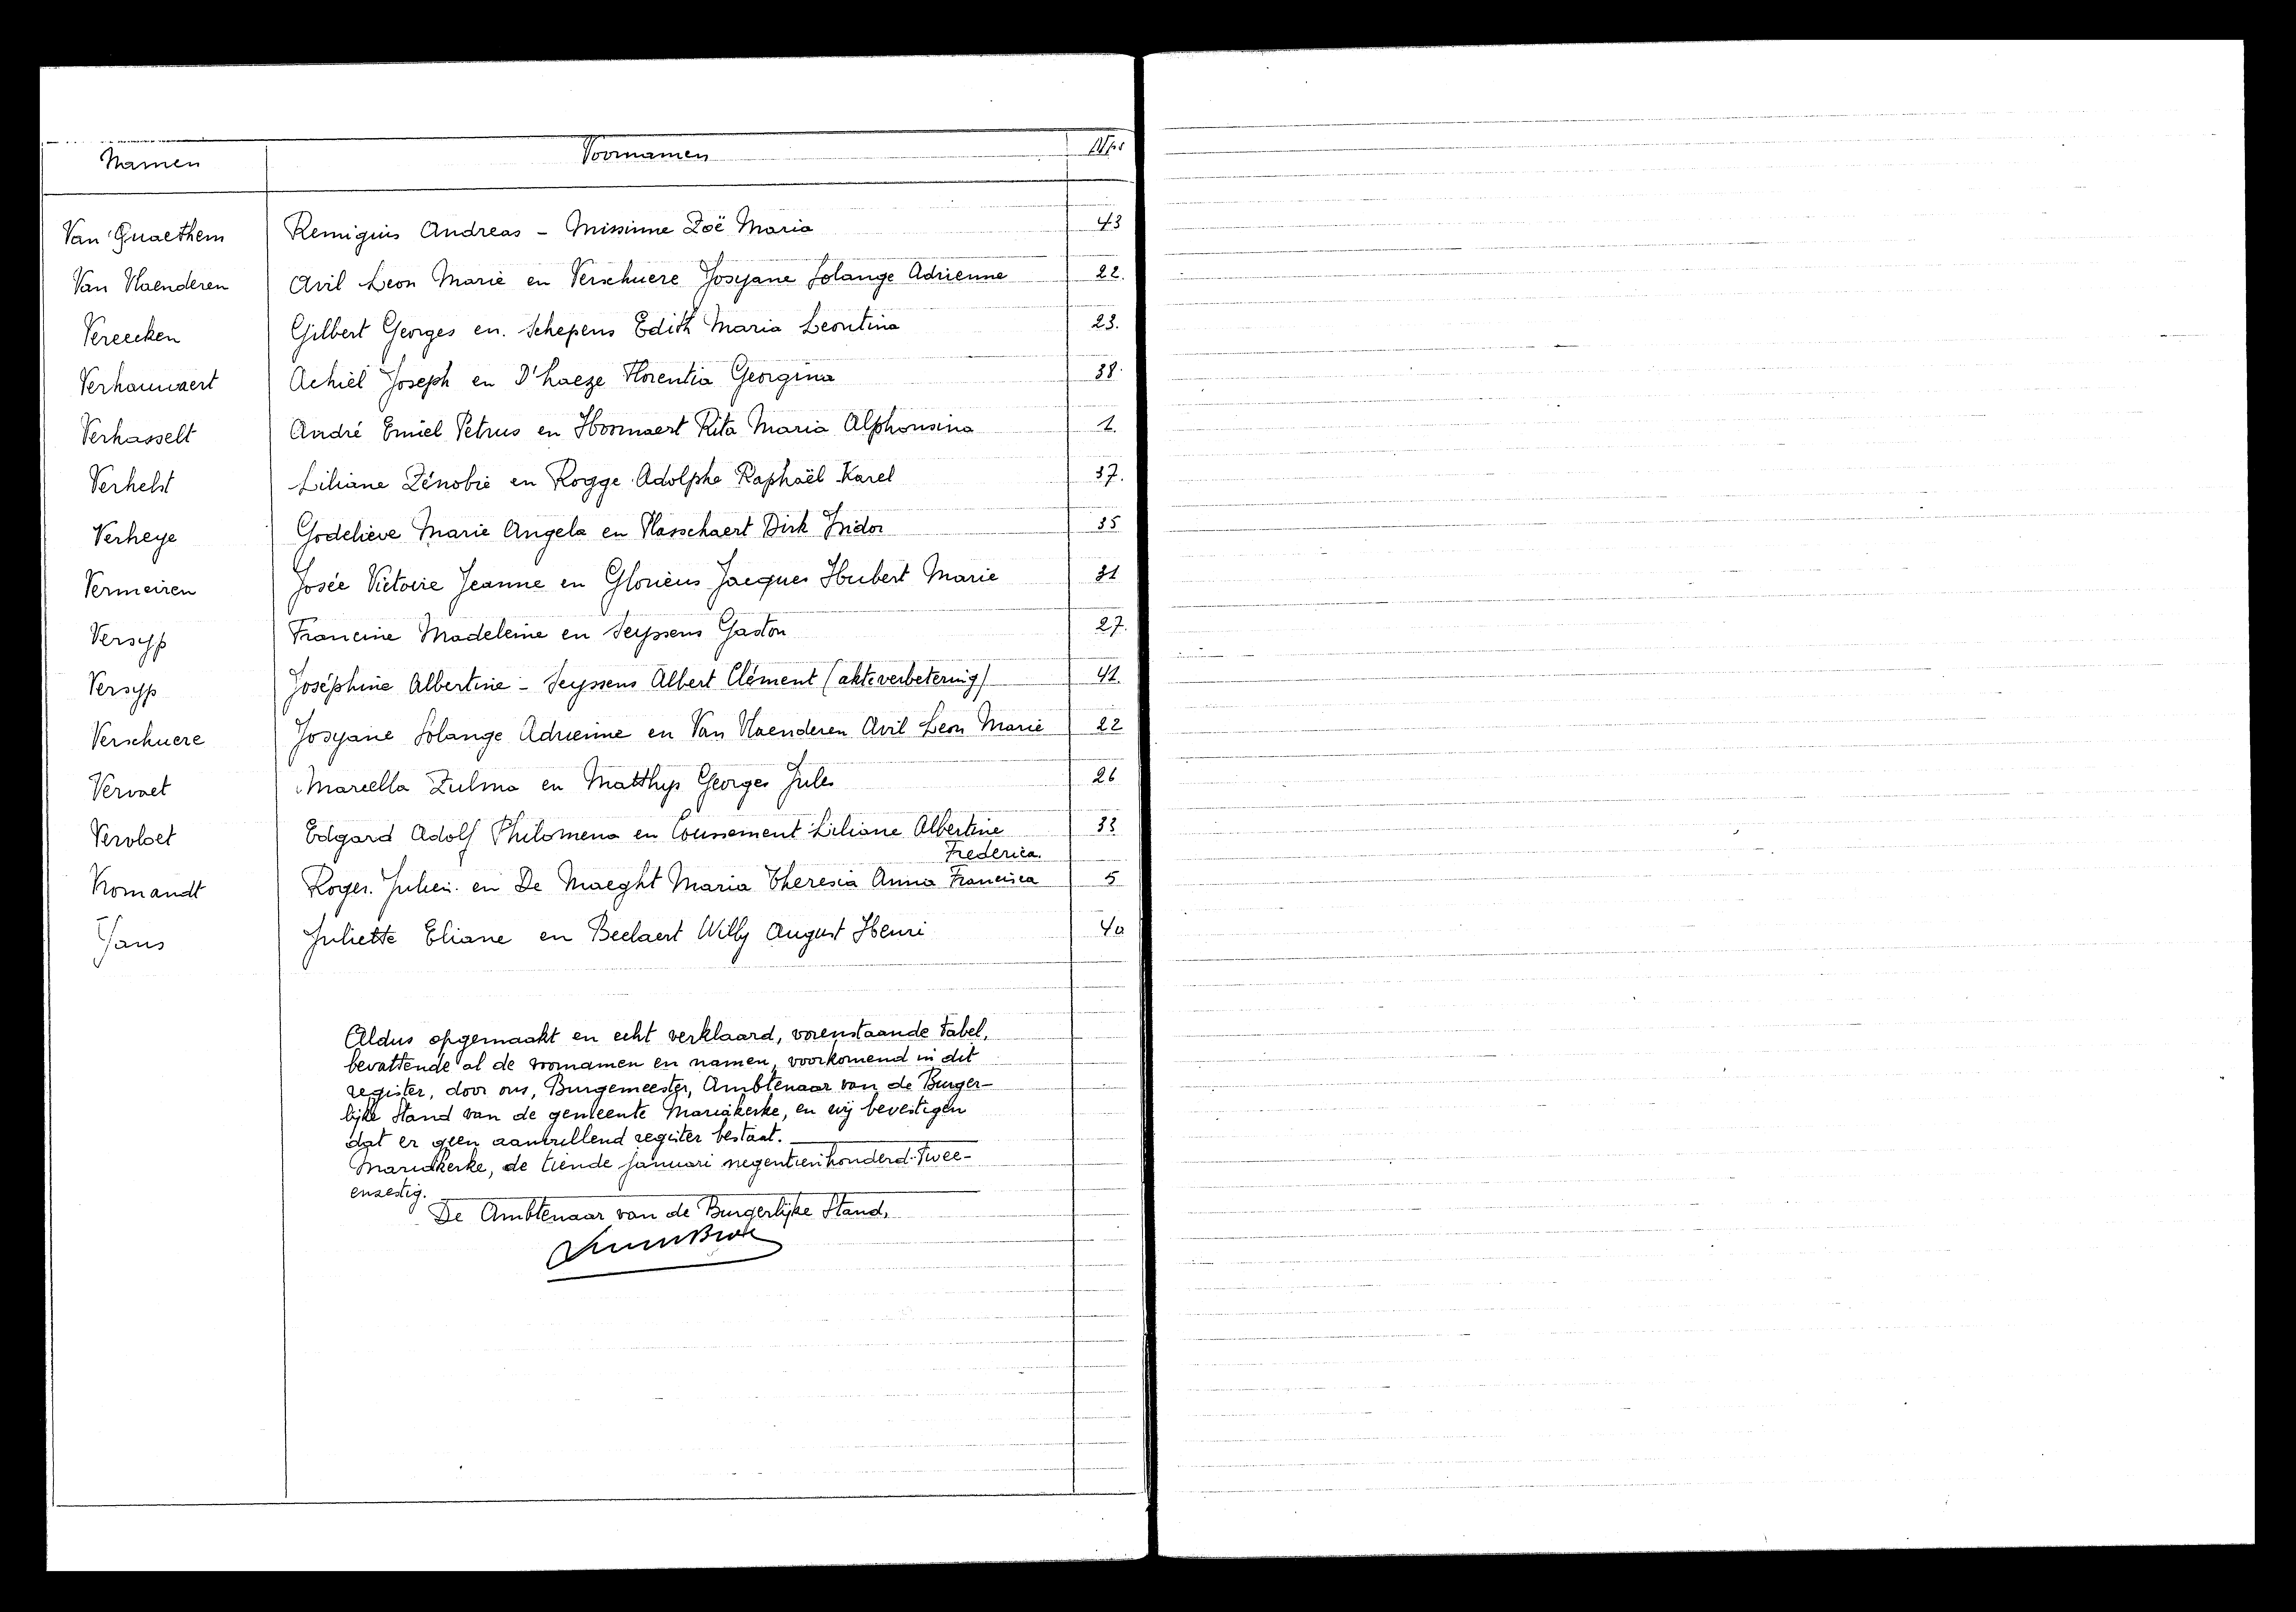 Namen Voornamen Nrs
Van Quaethem Remigius Andreas - Missinne Zoë Maria 43
Van Vlaenderen Avil Leon Marie en Verschuere Josyane Solange Adrienne 22.
Vereecken Gilbert Georges en. Schepens Edith Maria Leontina 23.
Verhauwaert Achiel Joseph en D'haeze Florentia Georgina 38.
Verhasselt André Emiel Petrus en Hoornaert Rita Maria Alphonsina 1.
Verhelst Liliane Zénobie en Rogge Adolphe Raphaël Karel 37.
Verheye Godelieve Marie Angela en Vlasschaert Dirk Isidor 35
Vermeiren Josée Victoire Jeanne en Glorieus Jacques Hubert Marie 31
Versyp Francine Madeleine en Seyssens Gaston 27.
Versyp Joséphine Albertine - Seyssens Albert Clément (akteverbetering) 41.
Verschuere Josyane Solange Adrienne en Van Vlaenderen Avil Leon Marie 22
Vervaet Marcella Zulma en Matthys Georges Jules 26
Vervloet Edgard Adolf Philomena en Coussement Liliane Albertine 33
Frederica.
Vromandt Roger. Julien. en De Maeght Maria Theresia Anna Francisca 5
Ijans Juliette Eliane en Beelaert Willy August Henri 40
Aldus opgemaakt en echt verklaard, vorenstaande tabel,
bevattende al de voornamen en namen, voorkomend in dit
register, door ons, Burgemeester, Ambtenaar van de Burger-
lijke Stand van de gemeente Mariakerke, en wij bevestigen
dat er geen aanvullend register bestaat.
Mariakerke, de tiende januari negentienhonderd twee-
enzestig.
De Ambtenaar van de Burgerlijke Stand,